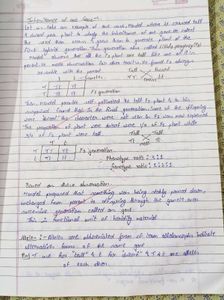 Inheritance of one Gene:-
Let's take an example of one such Model where he crossed tall
& dwarf pea plant to study the Inheritance of one gene. He collect
the seed from cross & grew them to generate plant of the
First hybrid generation. This generation also called
Mendel observe that all the F1 plant were tall like one of its
parent. He made observation for other traits. He found F1 always
resemble with the parent
Tall Dwarf
TT tt
gametes
F1 generation
Then, Mendel self-pollinated the tall F1 plant & to his
found that in the F2 generation some of the offspring
were dwarf the character were not seen in F1 were now expressed
The proportion of plant were dwarf were 1/4 of F2 plant while
3/4 of F2 plant were tall
T t
T TT Tt
t Tt tt
F2 generation
Phenotype ratio : 3:1
Genotype ratio : 1:2:1
Based on these observation
Mendel proposed that something was being stably passed down,
unchanged from parent to offspring through the gametes over
successive generation called as gene
This is functional unit of heredity material
Allele :- Alleles are abbreviated form of term allelomorphs
alternative forms of the same gene
T and t are alleles
of each other.